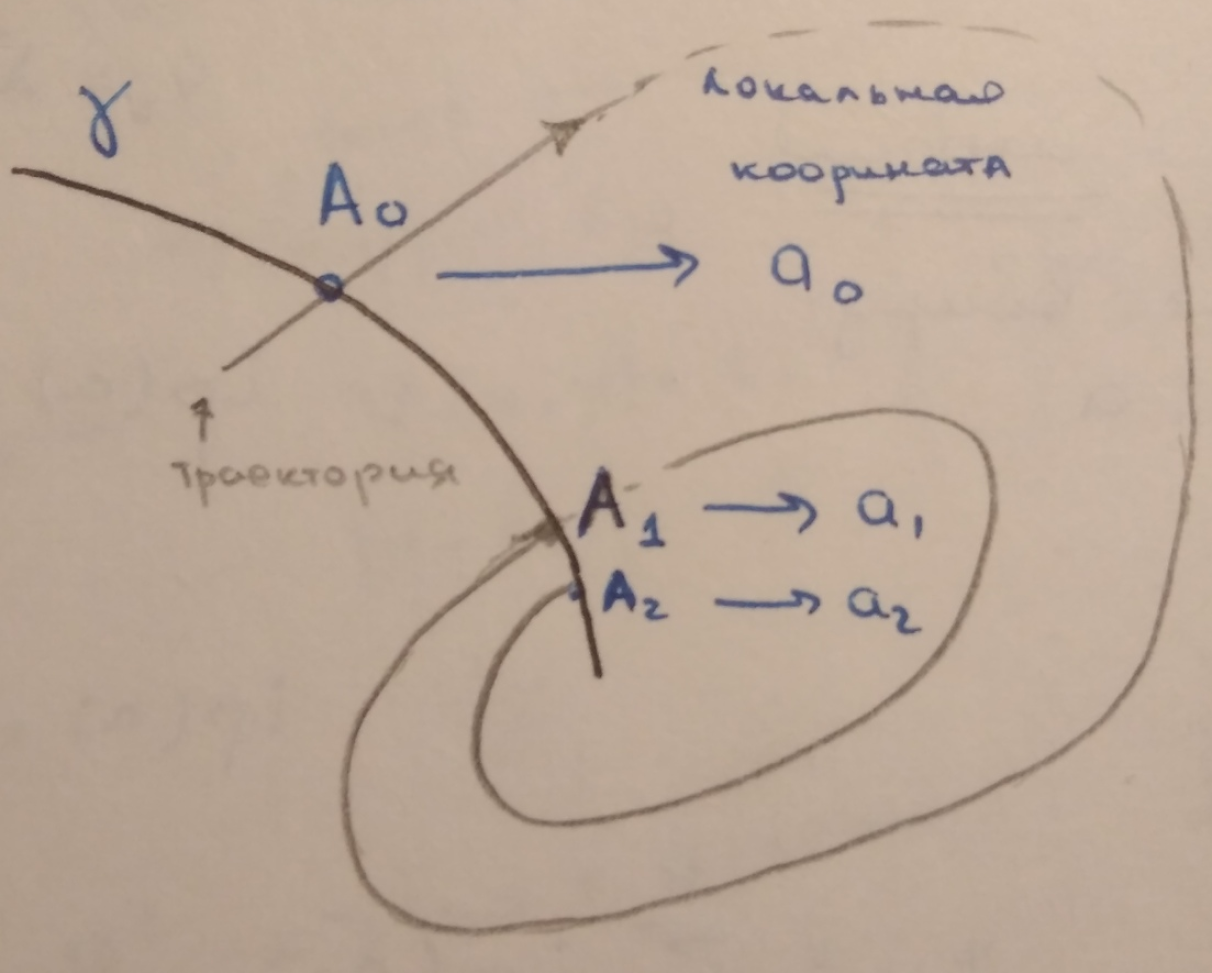 γ
локальная
коорината
A₀
→ a₀
траектория
A₁ → a₁
A₂ → a₂